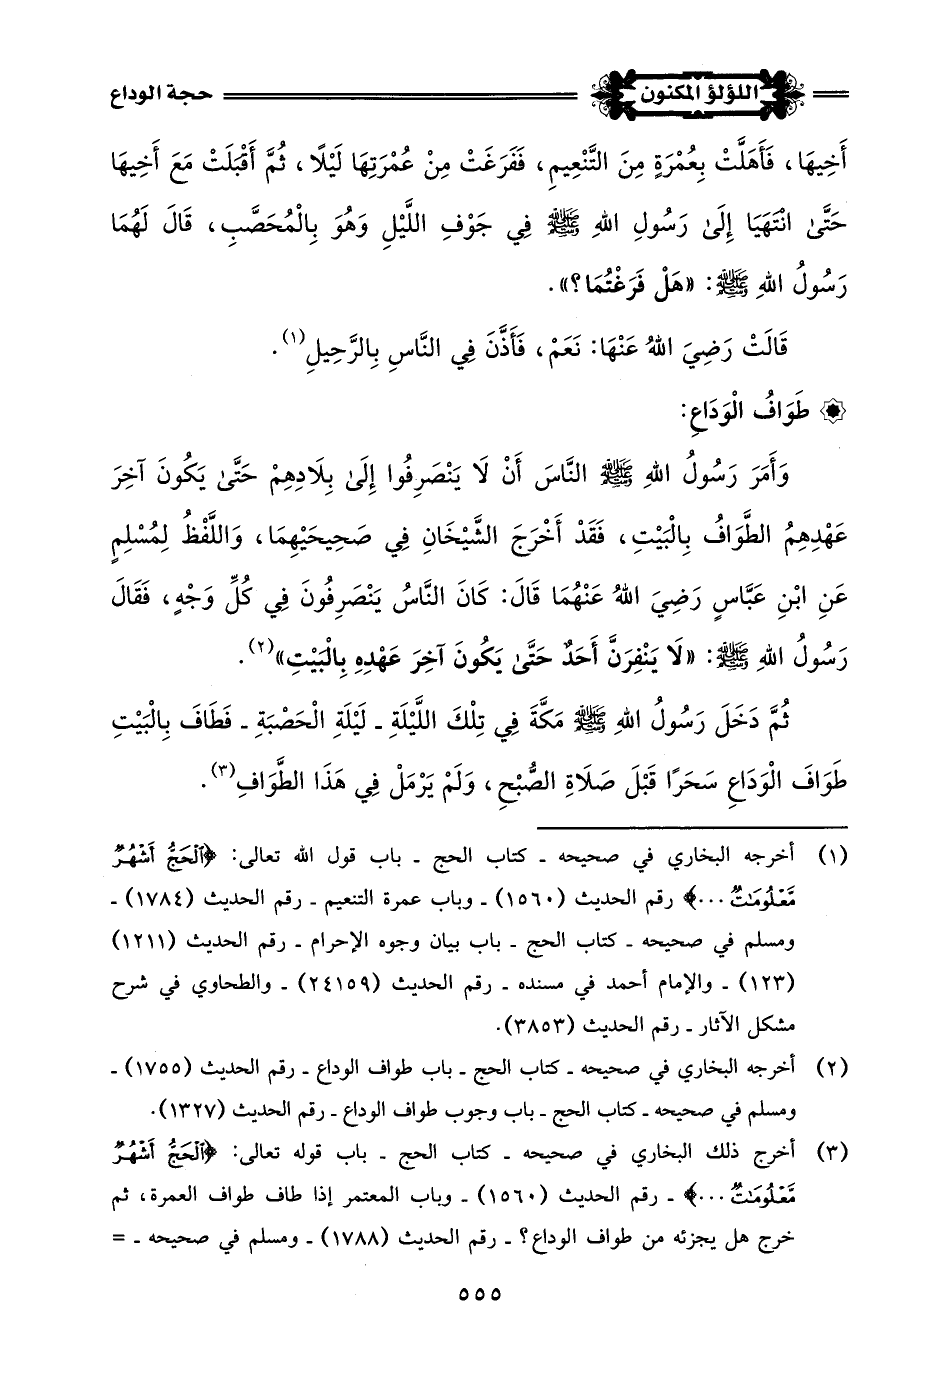 اللؤلؤ المكنون حجة الوداع
أَخِيهَا، فَأَهَلَّتْ بِعُمْرَةٍ مِنَ التَّنْعِيمِ، فَفَرَغَتْ مِنْ عُمْرَتِهَا لَيْلًا، ثُمَّ أَقْبَلَتْ مَعَ أَخِيهَا
حَتَّىٰ انْتَهَيَا إِلَىٰ رَسُولِ اللهِ ﷺ فِي جَوْفِ اللَّيْلِ وَهُوَ بِالْمُحَصَّبِ، قَالَ لَهُمَا
رَسُولُ اللهِ ﷺ: «هَلْ فَرَغْتُمَا؟».
قَالَتْ رَضِيَ اللهُ عَنْهَا: نَعَمْ، فَأَذَّنَ فِي النَّاسِ بِالرَّحِيلِ(١).
۞ طَوَافُ الْوَدَاعِ:
وَأَمَرَ رَسُولُ اللهِ ﷺ النَّاسَ أَنْ لَا يَنْصَرِفُوا إِلَىٰ بِلَادِهِمْ حَتَّىٰ يَكُونَ آخِرَ
عَهْدِهِمُ الطَّوَافُ بِالْبَيْتِ، فَقَدْ أَخْرَجَ الشَّيْخَانِ فِي صَحِيحَيْهِمَا، وَاللَّفْظُ لِمُسْلِمٍ
عَنِ ابْنِ عَبَّاسٍ رَضِيَ اللهُ عَنْهُمَا قَالَ: كَانَ النَّاسُ يَنْصَرِفُونَ فِي كُلِّ وَجْهٍ، فَقَالَ
رَسُولُ اللهِ ﷺ: «لَا يَنْفِرَنَّ أَحَدٌ حَتَّىٰ يَكُونَ آخِرَ عَهْدِهِ بِالْبَيْتِ»(٢).
ثُمَّ دَخَلَ رَسُولُ اللهِ ﷺ مَكَّةَ فِي تِلْكَ اللَّيْلَةِ ـ لَيْلَةِ الْحَصْبَةِ ـ فَطَافَ بِالْبَيْتِ
طَوَافَ الْوَدَاعِ سَحَرًا قَبْلَ صَلَاةِ الصُّبْحِ، وَلَمْ يَرْمَلْ فِي هَذَا الطَّوَافِ(٣).
(١) أخرجه البخاري في صحيحه ـ كتاب الحج ـ باب قول الله تعالى: ﴿ٱلْحَجُّ أَشْهُرٌ
مَّعْلُومَٰتٌ...﴾ رقم الحديث (١٥٦٠) ـ وباب عمرة التنعيم ـ رقم الحديث (١٧٨٤) ـ
ومسلم في صحيحه ـ كتاب الحج ـ باب بيان وجوه الإحرام ـ رقم الحديث (١٢١١)
(١٢٣) ـ والإمام أحمد في مسنده ـ رقم الحديث (٢٤١٥٩) ـ والطحاوي في شرح
مشكل الآثار ـ رقم الحديث (٣٨٥٣).
(٢) أخرجه البخاري في صحيحه ـ كتاب الحج ـ باب طواف الوداع ـ رقم الحديث (١٧٥٥) ـ
ومسلم في صحيحه ـ كتاب الحج ـ باب وجوب طواف الوداع ـ رقم الحديث (١٣٢٧).
(٣) أخرج ذلك البخاري في صحيحه ـ كتاب الحج ـ باب قوله تعالى: ﴿ٱلْحَجُّ أَشْهُرٌ
مَّعْلُومَٰتٌ...﴾ ـ رقم الحديث (١٥٦٠) ـ وباب المعتمر إذا طاف طواف العمرة، ثم
خرج هل يجزئه من طواف الوداع؟ ـ رقم الحديث (١٧٨٨) ـ ومسلم في صحيحه ـ =
٥٥٥